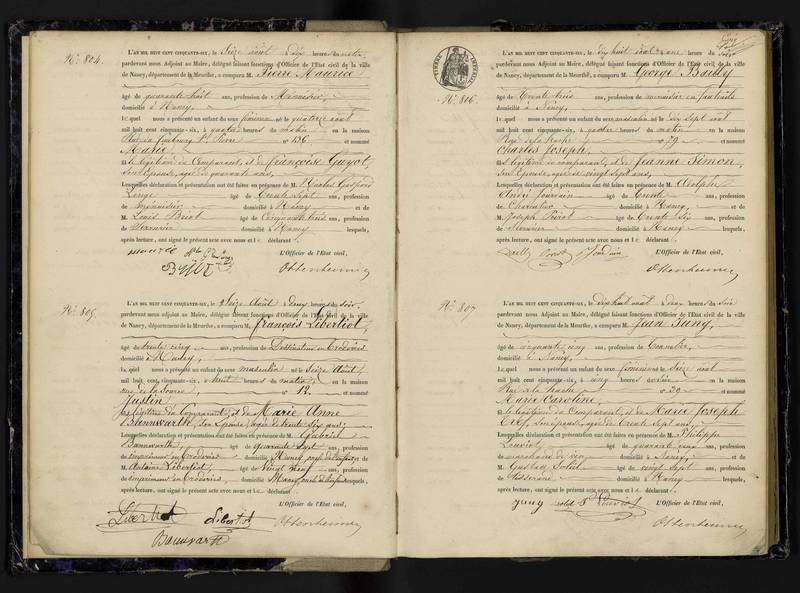 N° 804.
L'AN MIL HUIT CENT CINQUANTE-SIX, le Seize août Dix heures du matin
pardevant nous Adjoint au Maire, délégué faisant fonctions d'Officier de l'Etat civil de la ville
de Nancy, département de la Meurthe, a comparu M. Pierre Maurice
âgé de quarante huit ans, profession de Menuisier,
domicilié à Nancy,
Lequel nous a présenté un enfant du sexe féminin né le quatorze août
mil huit cent cinquante-six, à quatre heures du matin en la maison
Rue du faubourg St Pierre n° 136 et nommé
Marie
fille légitime du Comparant, et de françoise Guyot,
Son Epouse, agée de quarante ans,
Lesquelles déclaration et présentation ont été faites en présence de M. Nicolas Gaspard
âgé de trente Sept ans, profession
de menuisier domicilié à Nancy et de
M. Louis Briot âgé de Cinquante trois ans, profession
de Serrurier domicilié à Nancy lesquels,
après lecture, ont signé le présent acte avec nous et le déclarant
L'Officier de l'Etat civil,
Ottenheimer
N° 805.
L'AN MIL HUIT CENT CINQUANTE-SIX, le Seize Août Deux heures du Soir,
pardevant nous Adjoint au Maire, délégué faisant fonctions d'Officier de l'Etat civil de la ville
de Nancy, département de la Meurthe, a comparu M. françois Libertiot,
âgé de trente cinq ans, profession de Dessinateur en broderies
domicilié à Nancy,
Lequel nous a présenté un enfant du sexe masculin né le Seize Août
mil huit cent cinquante-six, à huit heures du matin, en la maison
rue de la Source, n° 12 et nommé
Justin,
fils légitime du Comparant, et de Marie Anne
Bannwarth, Son Epouse, agée de trente Six ans;
Lesquelles déclaration et présentation ont été faites en présence de M. Gabriel
Bannwarth, âgé de quarante Sept ans, profession
de domicilié à Nancy, et de
M. Antoine Libertiot, âgé de Vingt neuf ans, profession
de domicilié à Nancy, lesquels,
après lecture, ont signé le présent acte avec nous et le déclarant
L'Officier de l'Etat civil,
Libertiot Libertiot Ottenheimer
Bannwarth
N° 806.
L'AN MIL HUIT CENT CINQUANTE-SIX, le dix huit août onze heures du
pardevant nous Adjoint au Maire, délégué faisant fonctions d'Officier de l'Etat civil de la ville
de Nancy, département de la Meurthe, a comparu M. George Bailly
âgé de trente trois ans, profession de menuisier en fauteuils
domicilié à Nancy,
Lequel nous a présenté un enfant du sexe masculin né le dix sept août
mil huit cent cinquante-six, à quatre heures du matin en la maison
Rue de la hache n° 79 et nommé
Charles Joseph,
fils légitime du comparant, et de Jeanne Simon,
Son épouse, agée de vingt Sept ans,
Lesquelles déclaration et présentation ont été faites en présence de M. Adolphe
André Jourdain âgé de trente ans, profession
de Charcutier domicilié à Nancy et de
M. Joseph Poirot âgé de trente Six ans, profession
de Serrurier domicilié à Nancy lesquels,
après lecture, ont signé le présent acte avec nous et le déclarant
L'Officier de l'Etat civil,
Bailly Poirot Jourdain
Ottenheimer
N° 807
L'AN MIL HUIT CENT CINQUANTE-SIX, le dix huit août Deux heures du Soir
pardevant nous Adjoint au Maire, délégué faisant fonctions d'Officier de l'Etat civil de la ville
de Nancy, département de la Meurthe, a comparu M. Jean Jung,
âgé de cinquante cinq ans, profession de Tonnelier,
domicilié à Nancy,
Lequel nous a présenté un enfant du sexe féminin né le Seize août
mil huit cent cinquante-six, à cinq heures du soir en la maison
Rue de la hache n° 39 et nommé
Marie Caroline,
fille légitime du Comparant, et de Marie Joseph
Son épouse, agée de trente Sept ans,
Lesquelles déclaration et présentation ont été faites en présence de M. Philippe
Louviot âgé de quarante deux ans, profession
de marchand de vin domicilié à Nancy, et de
M. Gustave âgé de vingt Sept ans, profession
de domicilié à Nancy lesquels,
après lecture, ont signé le présent acte avec nous et le déclarant
L'Officier de l'Etat civil,
Jung
Ottenheimer